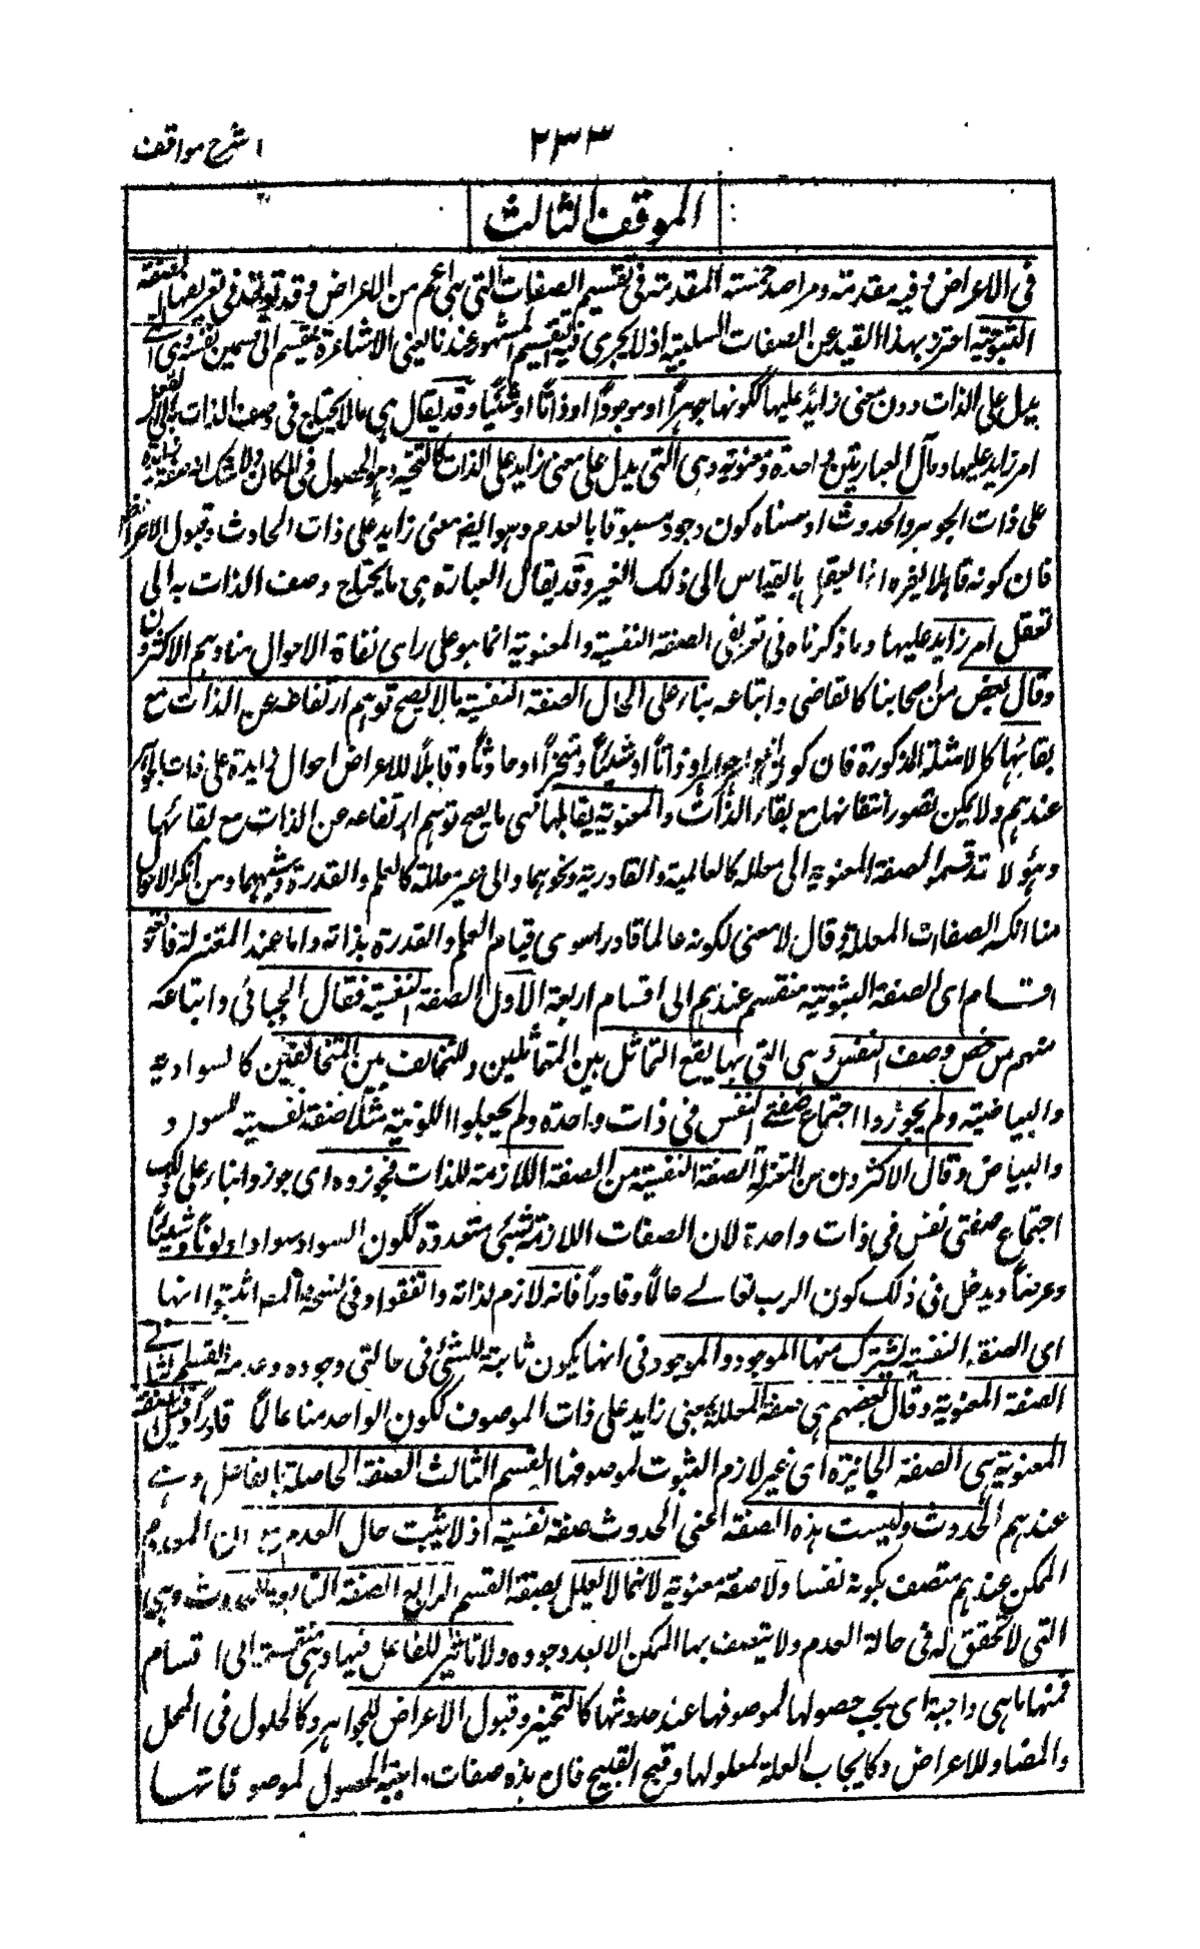 شرح مواقف
٢٣٣
الموقف الثالث
فى الاعراض وفيه مقدمة ومراصد خمسة المقدمة فى تقسيم الصفات التى هى اعم من الاعراض وقد تؤخذ فى تعريفها الصفة
الثبوتية احترز بهذا القيد عن الصفات السلبية اذ لا يجرى فيه التقسيم المشهور عندنا يعنى الاشاعرة ينقسم الى قسمين نفسية وهى التى
يدل على الذات دون معنى زايد عليها ككونها جوهرا او موجودا او ذاتا او شيئا وقد يقال هى ما لا يحتاج فى وصف الذات به الى تعقل
امر زايد عليها ومآل العبارتين واحدة ومعنوية وهى التى يدل على معنى زايد على الذات كالتحيز وهو الحصول فى المكان ولا شك انه صفة زايدة
على ذات الجوهر والحدوث اذ معناه كون وجوده مسبوقا بالعدم وهو ايضا معنى زايد على ذات الحادث وقبول الاعراض
فان كونه قابلا لغيره انما يعقل بالقياس الى ذلك الغير وقد يقال العبارة هى ما يحتاج وصف الذات به الى
تعقل امر زايد عليها وما ذكرناه فى تعريفى الصفة النفسية والمعنوية انما هو على راى نفاة الاحوال منا وهم الاكثرون
وقال بعض من اصحابنا كالقاضى واتباعه بناء على الحال الصفة النفسية ما لا يصح توهم ارتفاعه عن الذات مع
بقائها كالامثلة المذكورة فان كون الجوهر جوهرا او ذاتا او شيئا ومتحيزا او حادثا وقابلا للاعراض احوال زايدة على ذات الجوهر
عندهم ولا يمكن تصور انتفائها مع بقاء الذات والمعنوية يقابلها فهى ما يصح توهم ارتفاعه عن الذات مع بقائها
وهؤلاء قد قسموا الصفة المعنوية الى معللة كالعالمية والقادرية ونحوهما والى غير معللة كالعلم والقدرة وشبههما ومن انكر الاحوال
منا انكر الصفات المعللة وقال لا معنى لكونه عالما قادرا سوى قيام العلم والقدرة بذاته واما عند المعتزلة فاربعة
اقسام اى الصفة الثبوتية منقسم عندهم الى اقسام اربعة الاول الصفة النفسية فقال الجبائى واتباعه
منهم من خص وصف النفس وهى التى بها يقع التماثل بين المتماثلين والتخالف بين المتخالفين كالسوادية
والبياضية ولم يجوزوا اجتماع صفتى النفس فى ذات واحدة ولم يجعلوا اللونية مثلا صفة نفسية للسواد و
والبياض وقال الاكثرون من المعتزلة الصفة النفسية من الصفة اللازمة للذات فجوزوه اى جوزوا بناء على ذلك
اجتماع صفتى نفس فى ذات واحدة لان الصفات اللازمة لشئ متعددة ككون السواد سوادا ولونا وشيئا
وعرضا ويدخل فى ذلك كون الرب تعالى عالما وقادرا فانه لازم لذاته واتفقوا وفى نسخة المتن اثبتوا انها
اى الصفة النفسية يشترك منها الموجود والموجود فى انها يكون ثابتة للشئ فى حالتى وجوده وعدمه القسم الثانى
الصفة المعنوية وقال بعضهم هى صفة المعللة بمعنى زايد على ذات الموصوف ككون الواحد منا عالما قادرا وقيل الصفة
المعنوية هى الصفة الجايزة اى غير لازم الثبوت لموصوفها القسم الثالث الصفة الحاصلة بالفاعل وهى
عندهم الحدوث وليست هذه الصفة اعنى الحدوث صفة نفسية اذ لا يثبت حال العدم مع ان المعدوم
الممكن عندهم متصف بكونه نفسا ولا صفة معنوية لانها لا يعلل بصفة القسم الرابع الصفة التابعة للحدوث وهى
التى لا تحقق له فى حالة العدم ولا يتصف بها الممكن الا بعد وجوده ولا تاثير للفاعل فيها وهى منقسمة الى اقسام
فمنها ما هى واجبة اى يجب حصولها لموصوفها عند حدوثها كالتحيز وقبول الاعراض للجواهر وكالحلول فى المحل
والمضاد للاعراض وكايجاب العلة لمعلولها وقبح القبيح فان هذه صفات واجبة الحصول لموصوفاتها